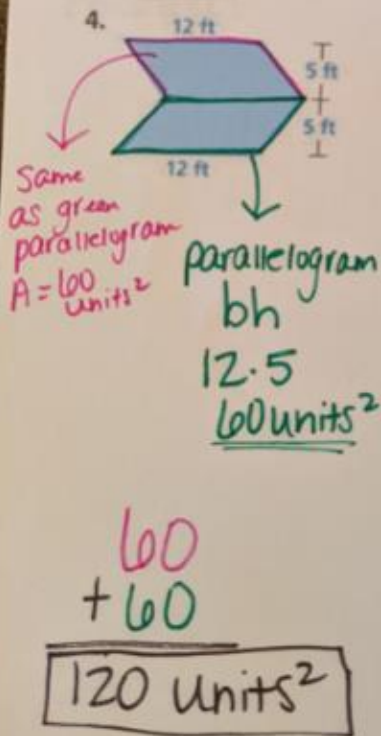 4.
12 ft
5 ft
5 ft
12 ft
Same
as green
parallelogram
A = 60
units²
parallelogram
bh
12.5
60 units²
60
+ 60
120 units²